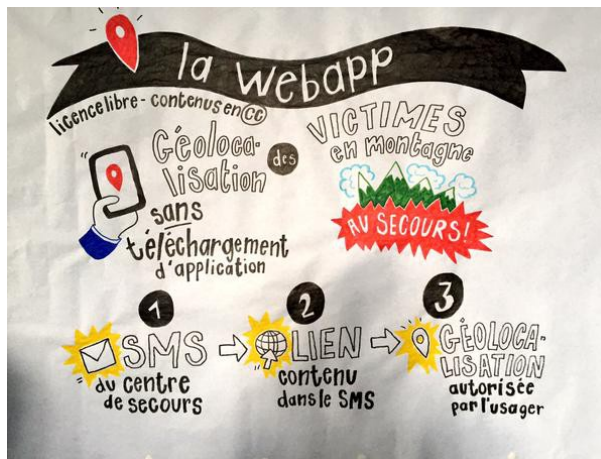 la Webapp
licence libre - contenus en CC
Géoloca-
lisation
des
VICTIMES
en montagne
sans
téléchargement
d'application
AU SECOURS!
1
SMS
du centre
de secours
2
LIEN
contenu
dans le SMS
3
GÉOLOCA-
LISATION
autorisée
par l'usager